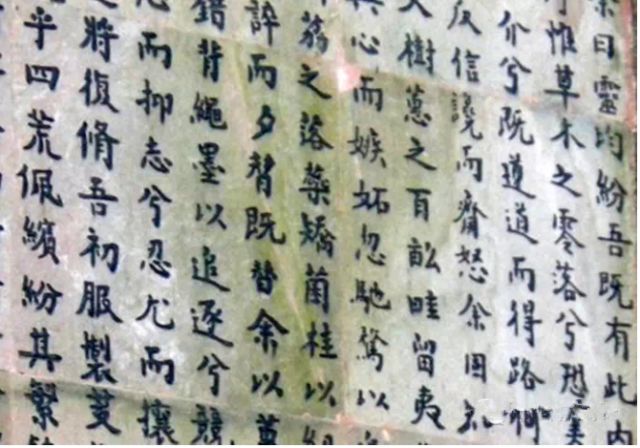 曰靈均紛吾既有此内
惟草木之零落兮恐美
介兮既遵道而得路何
反信讒而齋怒余固知
樹蕙之百畝畦留夷
心而嫉妬忽馳騖以
荔之落蘂矯菌桂以
誶而夕替既替余以蕙
錯背繩墨以追逐兮競
心而抑志兮忍尤而攘
將復脩吾初服製芰
乎四荒佩繽紛其繁